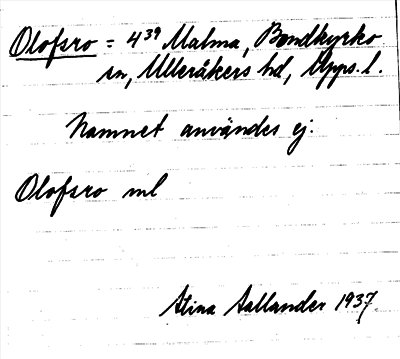 Olofsro = 4³⁹ Malma, Bondkyrko
sn, Ulleråkers hd, Upps. l.
Namnet användes ej.
Olofsro ml
Stina Aallander 1937